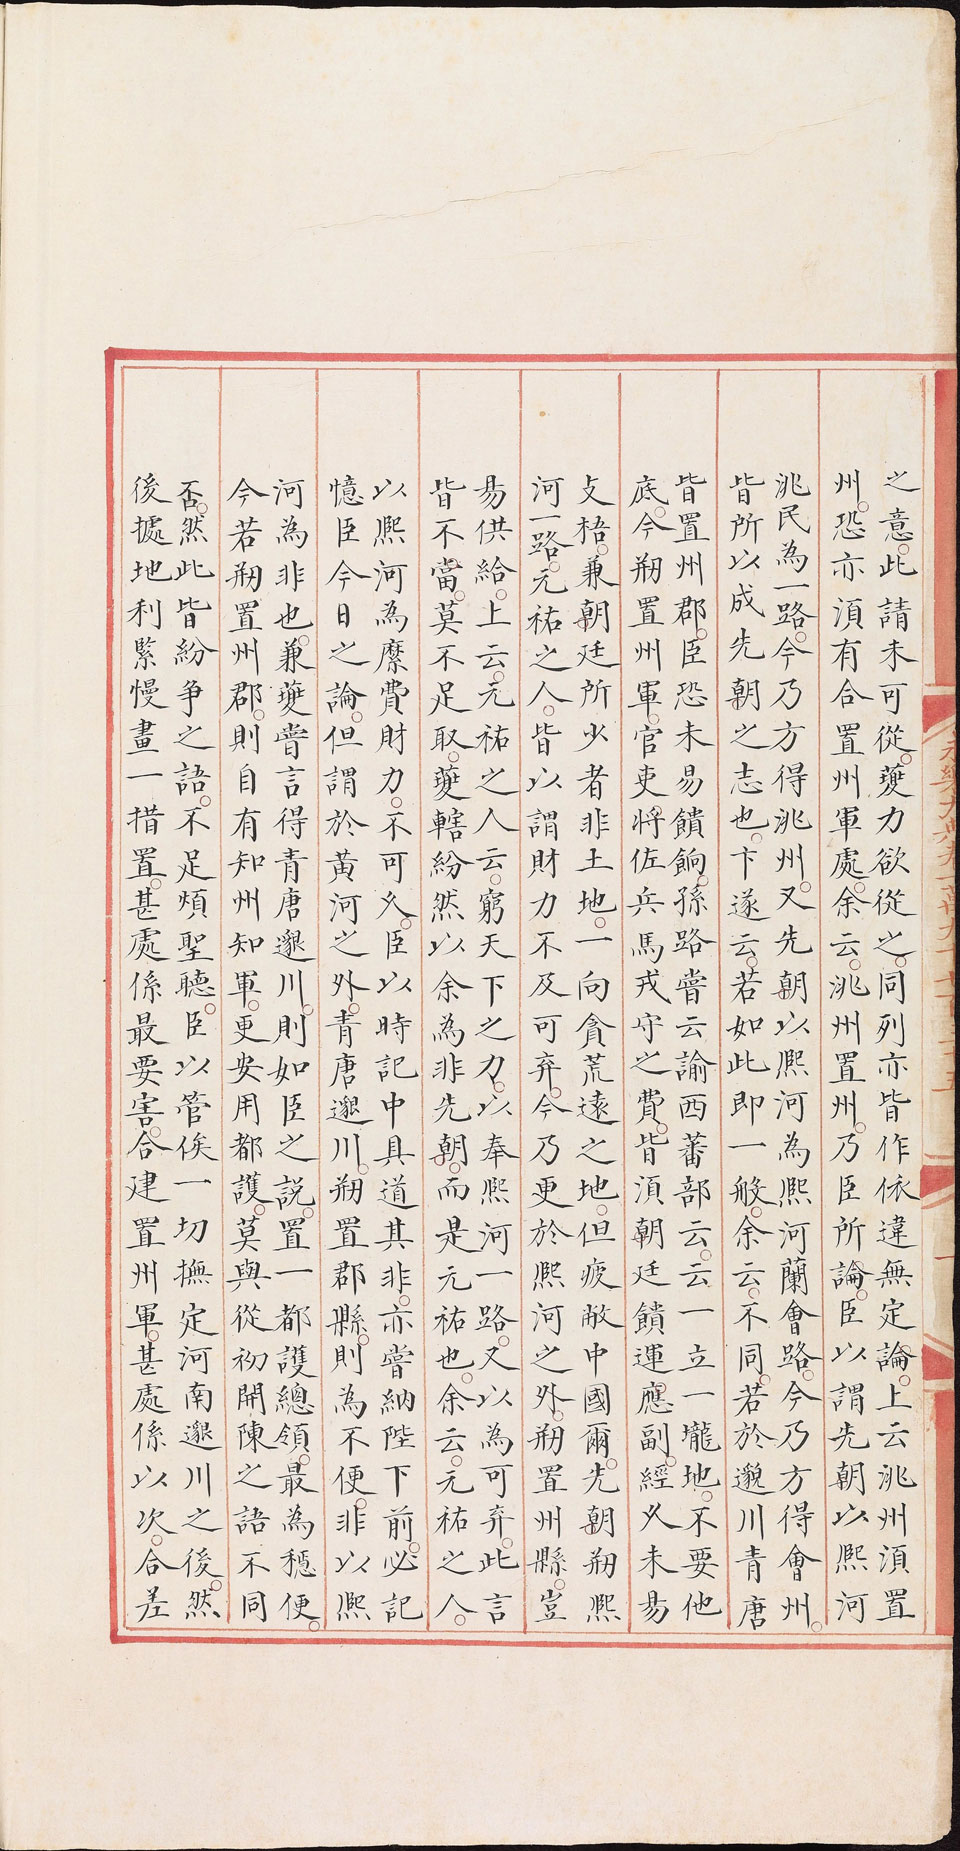 之意。此請未可從。夔力欲從之。同列亦皆作依違無定論。上云洮州湏置
州。恐亦湏有合置州軍處。余云。洮州置州。乃臣所論。臣以謂先朝以熙河
洮民為一路。今乃方得洮州。又先朝以熙河為熙河蘭會路。今乃方得會州。
皆所以成先朝之志也。卞遂云。若如此即一般。余云。不同。若於邈川青唐
皆置州郡。臣恐未易饋餉。孫路嘗云諭西蕃部云。云一立一壠地。不要他
底。今剏置州軍。官吏。將佐兵馬戎守之費。皆湏朝廷饋運。應副。經久未易
支梧。兼朝廷所少者非土地。一向貪荒遠之地。但疲敝中國爾。先朝剏熙
河一路。元祐之人。皆以謂財力不及可弃。今乃更於熙河之外。剏置州縣。豈
易供給。上云。元祐之人云。窮天下之力。以奉熙河一路。又以為可弃。此言
皆不當。莫不足取。夔轄紛然以余為非先朝。而是元祐也。余云。元祐之人。
以熙河為縻費財力。不可久。臣以時記中具道其非。亦嘗納陛下前。必記
憶臣今日之論。但謂於黃河之外。青唐邈川。剏置郡縣。則為不便。非以熙
河為非也。兼夔嘗言得青唐邈川。則如臣之説。置一都護總領。最為穩便。
今若剏置州郡。則自有知州知軍。更安用都護。莫與從初開陳之語不同
否。然此皆紛爭之語。不足煩聖聽。臣以管俟一切撫定河南邈川之後。然
後據地利緊慢畫一措置。甚處係最要害。合建置州軍。甚處係以次。合差